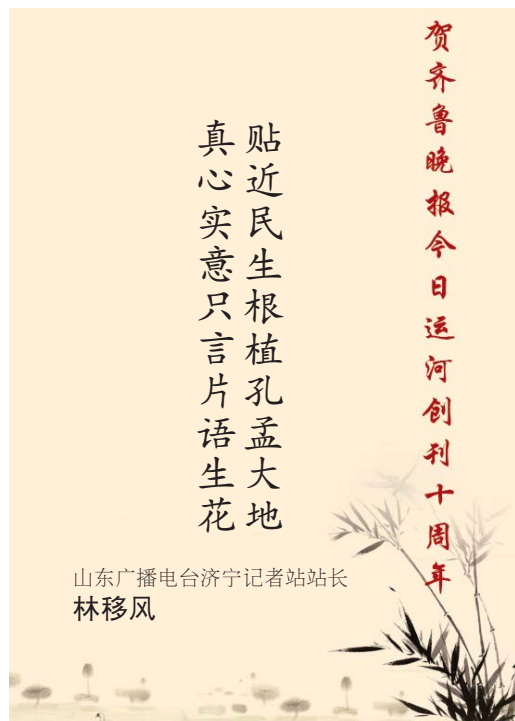 贺齐鲁晚报今日运河创刊十周年
贴近民生根植孔孟大地
真心实意只言片语生花
山东广播电台济宁记者站站长
林移风